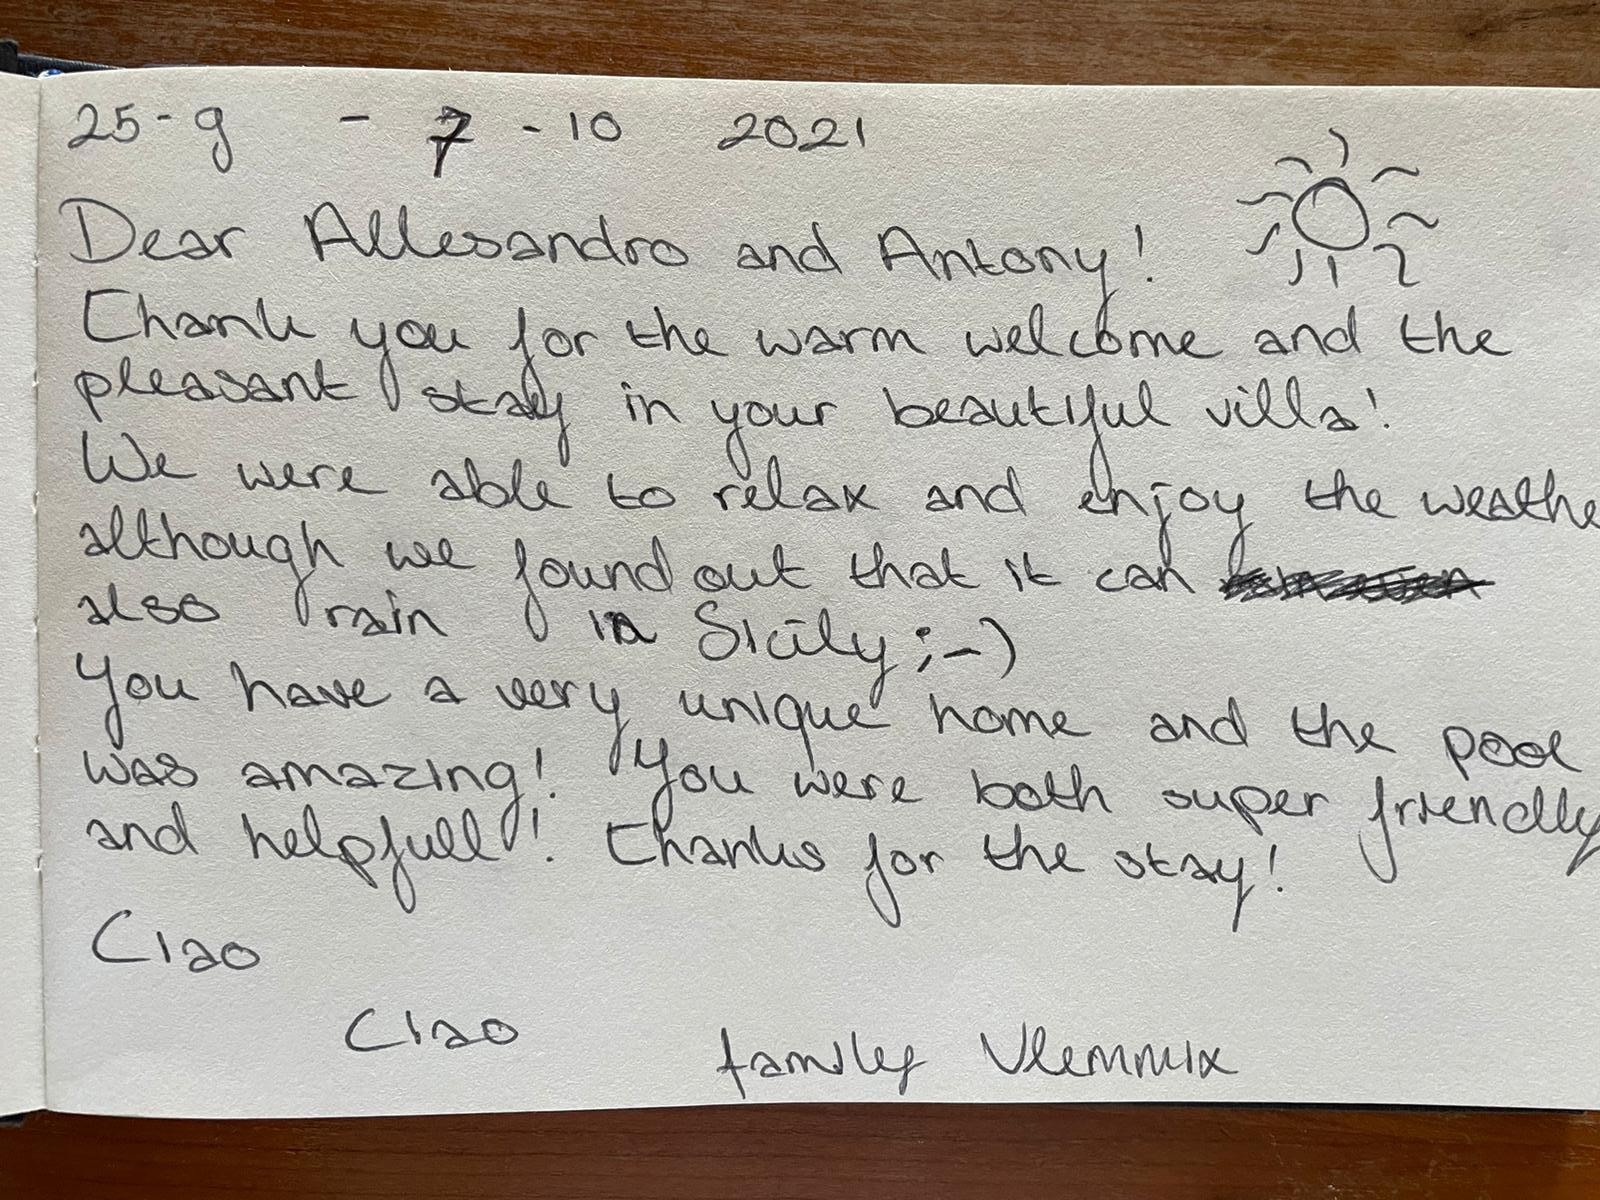 25-9 - 7 -10 2021
Dear Allesandro and Antony!
Thank you for the warm welcome and the
pleasant stay in your beautiful villa!
We were able to relax and enjoy the weathe
although we found out that it can
also rain in Sicily ;-)
You have a very unique home and the pool
was amazing! You were both super friendly
and helpfull! Thanks for the stay!
Ciao
Ciao
family Vlemmix